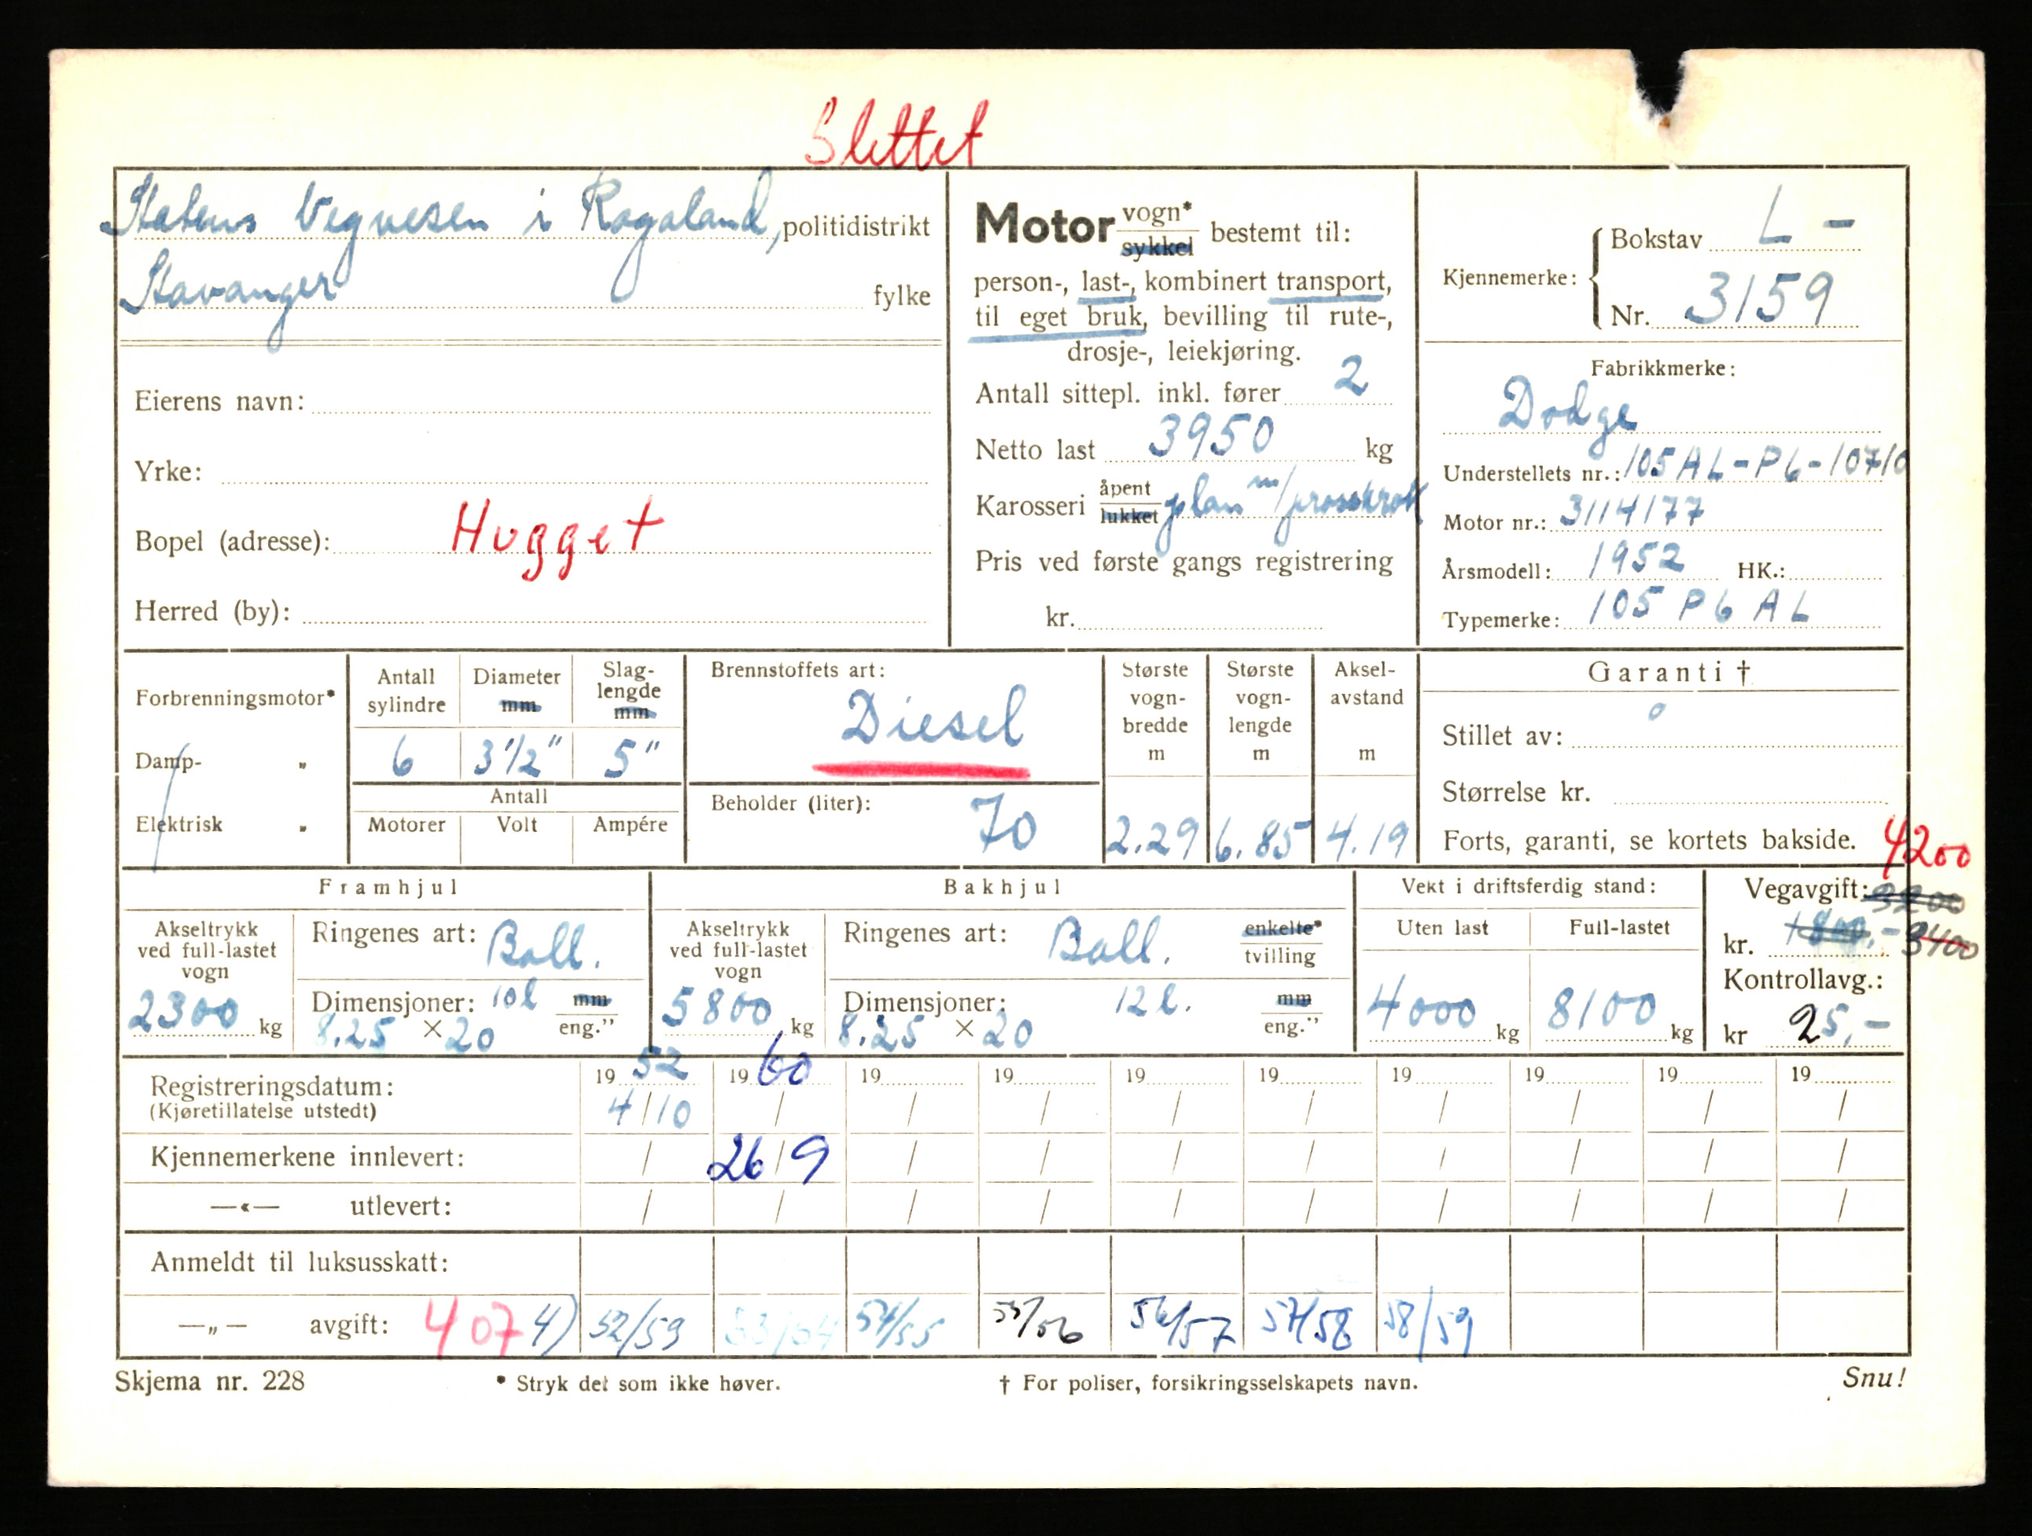 Slettet
Statens Vegvesen i Rogaland, politidistrikt
Stavanger fylke
Eierens navn:
Yrke:
Bopel (adresse): Hugget
Herred (by):
Motor vogn* sykkel bestemt til:
person-, last-, kombinert transport,
til eget bruk, bevilling til rute-,
drosje-, leiekjøring.
Antall sittepl. inkl. fører 2
Netto last 3950 kg
Karosseri åpent lukket plan m/
Pris ved første gangs registrering
kr.
Kjennemerke: Bokstav L -
Nr. 3159
Fabrikkmerke:
Dodge
Understellets nr.: 105AL-P6-10710
Motor nr.: 3114177
Årsmodell: 1952 HK.:
Typemerke: 105 P6 AL
Forbrenningsmotor*
Damp- „
Elektrisk „
Antall sylindre 6
Diameter mm 3 1/2"
Slag-lengde mm 5"
Antall
Motorer Volt Ampére
Brennstoffets art:
Diesel
Beholder (liter): 70
Største vogn-bredde m 2.29
Største vogn-lengde m 6.85
Aksel-avstand m 4.19
Garanti †
Stillet av:
Størrelse kr.
Forts, garanti, se kortets bakside.
Framhjul
Akseltrykk ved full-lastet vogn
2300 kg
Ringenes art: Ball.
Dimensjoner: 10l mm
8.25 × 20 eng."
Bakhjul
Akseltrykk ved full-lastet vogn
5800 kg
Ringenes art: Ball. enkelte* tvilling
Dimensjoner: 12l. mm
8.25 × 20 eng."
Vekt i driftsferdig stand:
Uten last Full-lastet
4000 kg 8100 kg
4200
Vegavgift: 3200
kr. 1800,- 3400
Kontrollavg.:
kr 25,-
Registreringsdatum: 1952 1960 19 19 19 19 19 19 19 19
(Kjøretillatelse utstedt) 4/10 / / / / / / / / /
Kjennemerkene innlevert: / 26/9 / / / / / / / /
—«— utlevert: / / / / / / / / / /
Anmeldt til luksusskatt:
—„— avgift: 407 4) 52/53 53/54 54/55 55/56 56/57 57/58 58/59
Skjema nr. 228
* Stryk det som ikke høver.
† For poliser, forsikringsselskapets navn.
Snu!